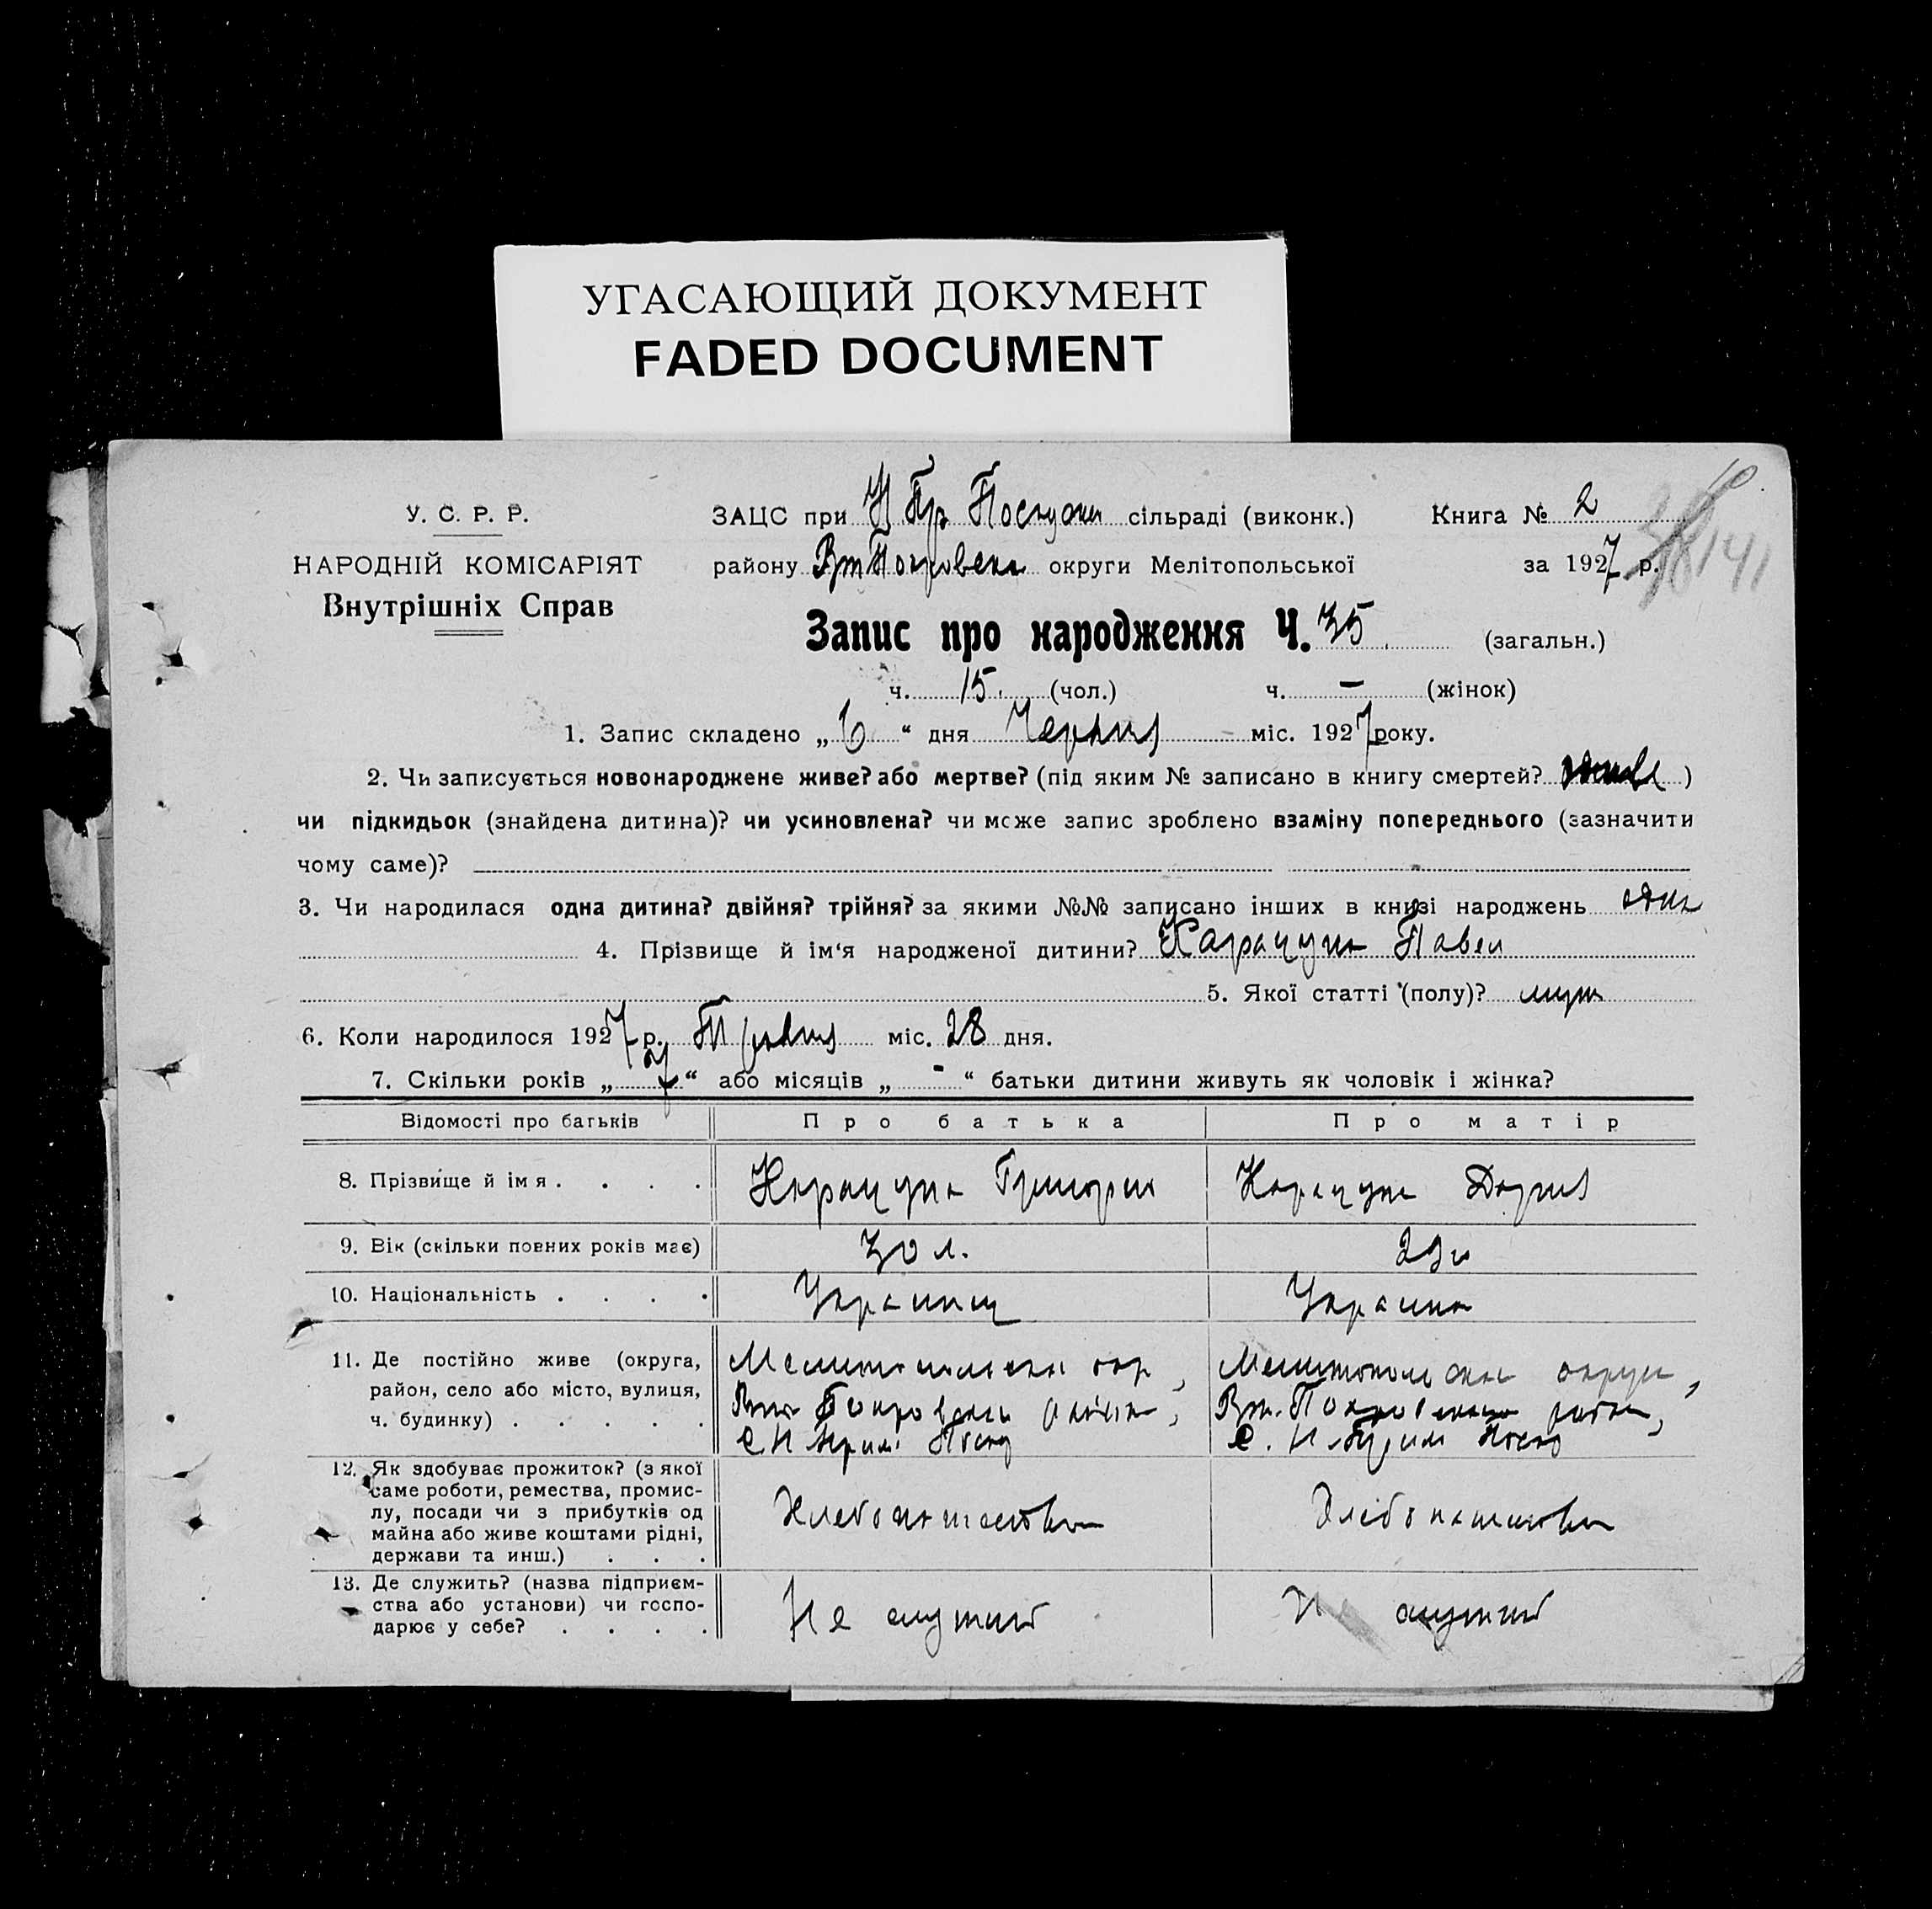 УГАСАЮЩИЙ ДОКУМЕНТ
FADED DOCUMENT
У. С. Р. Р.
НАРОДНІЙ КОМІСАРІЯТ
Внутрішніх Справ
ЗАЦС при Н Пр Поскуани сільраді (виконк.) Книга № 2
району Вт Покровськ округи Мелітопольської за 1927 р.
Запис про народження Ч. 35 (загальн.)
ч. 15. (чол.) ч. – (жінок)
1. Запис складено „6“ дня Червня міс. 1927 року.
2. Чи записується новонароджене живе? або мертве? (під яким № записано в книгу смертей? живе )
чи підкидьок (знайдена дитина)? чи усиновлена? чи може запис зроблено взаміну попереднього (зазначити
чому саме)?
3. Чи народилася одна дитина? двійня? трійня? за якими №№ записано інших в книзі народжень одна
4. Прізвище й ім‘я народженої дитини? Карацупа Павел
5. Якої статті (полу)? муж
6. Коли народилося 1927 р. Травня міс. 28 дня.
7. Скільки років „ “ або місяців „-“ батьки дитини живуть як чоловік і жінка?
Відомості про батьків Про батька Про матір
8. Прізвище й імя . . . . Карацупа Григорий Карацупа Дария
9. Вік (скільки повних років має) 30 л. 29 л
10. Національність . . . . Украинец Украинка
11. Де постійно живе (округа, Мелитопольска окр, Мелитопольска округа,
район, село або місто, вулиця, Вт Покровська район, Вт. Покровська район,
ч. будинку) . . . . . С Н Посад С. Н Посад
12. Як здобуває прожиток? (з якої
саме роботи, ремества, промис-
лу, посади чи з прибутків од Хлебопашество Хлебопашество
майна або живе коштами рідні,
держави та инш.) . . .
13. Де служить? (назва підприєм-
ства або установи) чи госпо- Не служит Не служит
дарює у себе? . . . .